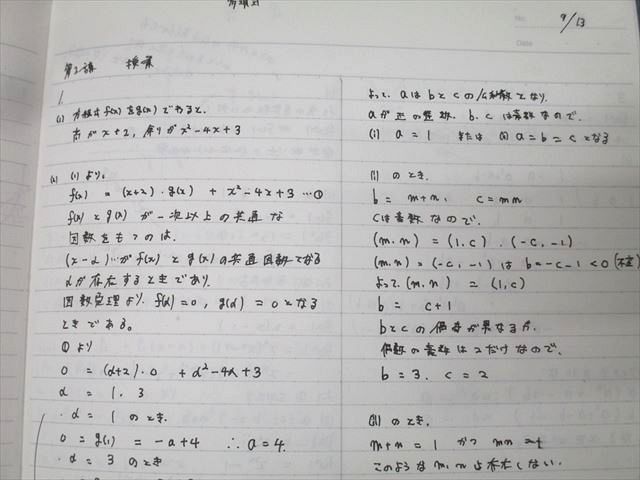 多項式
No.
9/13
Date
第2講 授業
1.
(1) 方程式f(x)をg(x)でわると、
商がx+2, 余りがx²-4x+3
(2) (1)より。
f(x) = (x+2)・g(x) + x²-4x+3 …①
f(x)とg(x)が一次以上の共通な
因数をもつのは、
(x-α)…がf(x)とg(x)の共通因数である
αが存在するときであり
因数定理より f(α)=0, g(α)=0となる
ときである。
①より
0 = (α+2)・0 + α²-4α+3
α = 1, 3
・α = 1のとき.
0 = g(1) = -a+4 ∴a=4.
・α = 3のとき
よって, aはbとcの公約数となり.
aが正の整数, b, cは素数なので.
(i) a=1 または (ii) a=b=cとなる
(i)のとき.
b = m+n, c = mn
cは素数なので.
(m,n) = (1,c), (-c,-1)
(m,n) = (-c,-1)は b=-c-1<0 (不適)
よって(m,n) = (1,c)
b = c+1
bとcの偶奇が異なるが,
偶数の素数は2だけなので.
b=3, c=2
(ii)のとき.
m+n=1 かつ mn=
このようなm,nは存在しない。